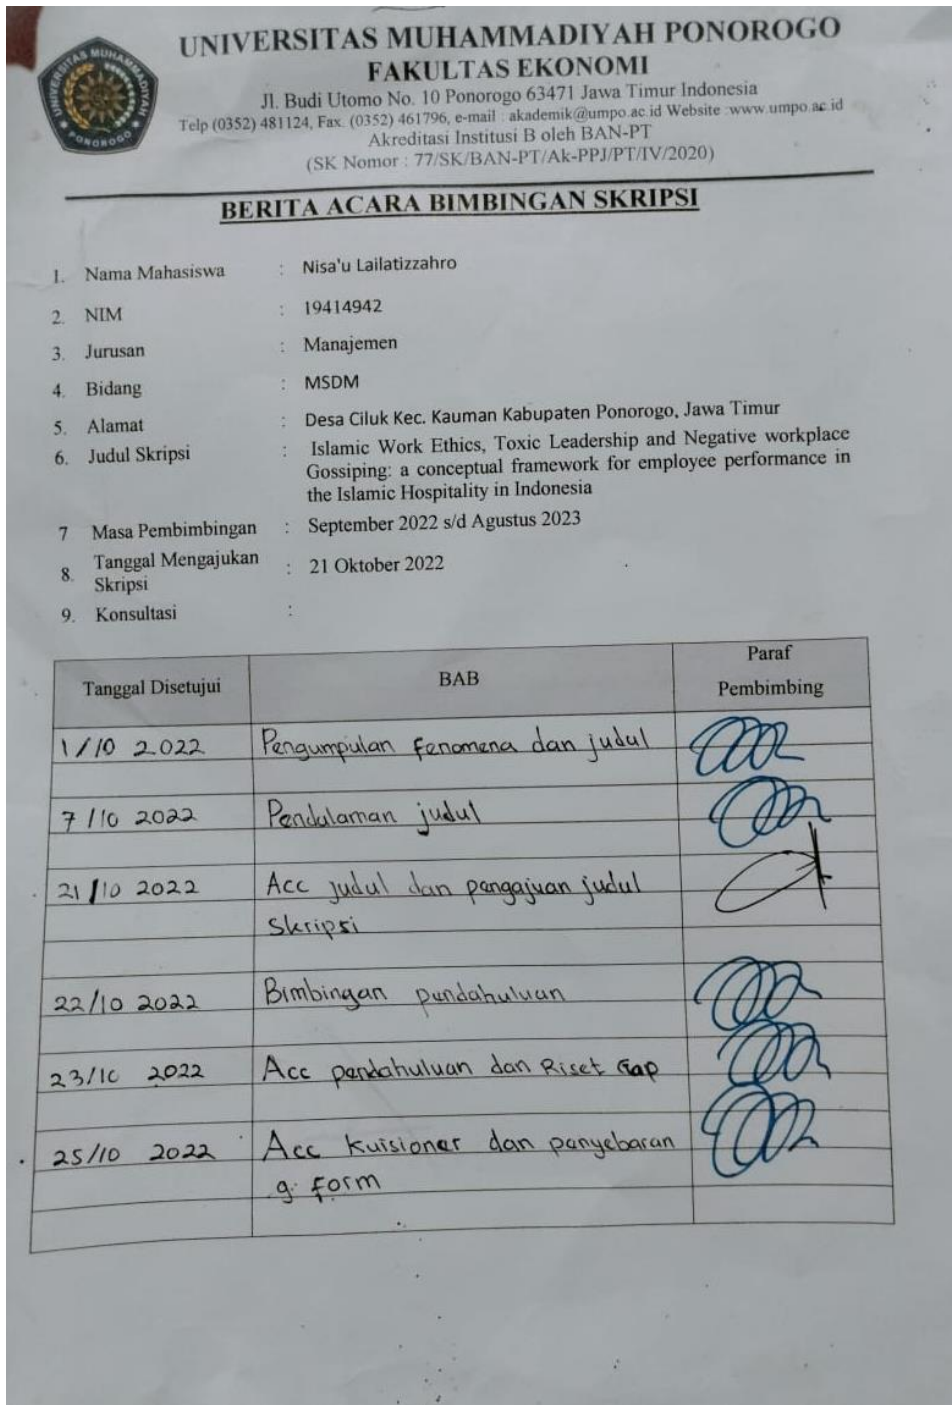 UNIVERSITAS MUHAMMADIYAH PONOROGO
FAKULTAS EKONOMI
Jl. Budi Utomo No. 10 Ponorogo 63471 Jawa Timur Indonesia
Telp (0352) 481124, Fax. (0352) 461796, e-mail : akademik@umpo.ac.id Website :www.umpo.ac.id
Akreditasi Institusi B oleh BAN-PT
(SK Nomor : 77/SK/BAN-PT/Ak-PPJ/PT/IV/2020)
UNIVERSITAS MUHAMMADIYAH PONOROGO
BERITA ACARA BIMBINGAN SKRIPSI
1. Nama Mahasiswa : Nisa'u Lailatizzahro
2. NIM : 19414942
3. Jurusan : Manajemen
4. Bidang : MSDM
5. Alamat : Desa Ciluk Kec. Kauman Kabupaten Ponorogo, Jawa Timur
6. Judul Skripsi : Islamic Work Ethics, Toxic Leadership and Negative workplace
Gossiping: a conceptual framework for employee performance in
the Islamic Hospitality in Indonesia
7 Masa Pembimbingan : September 2022 s/d Agustus 2023
8. Tanggal Mengajukan Skripsi : 21 Oktober 2022
9. Konsultasi :
Tanggal Disetujui BAB Paraf Pembimbing
1/10 2022 Pengumpulan fenomena dan judul
7/10 2022 Pendalaman judul
21/10 2022 Acc judul dan pengajuan judul
Skripsi
22/10 2022 Bimbingan pendahuluan
23/10 2022 Acc pendahuluan dan Riset Gap
25/10 2022 Acc kuisioner dan penyebaran
g. form